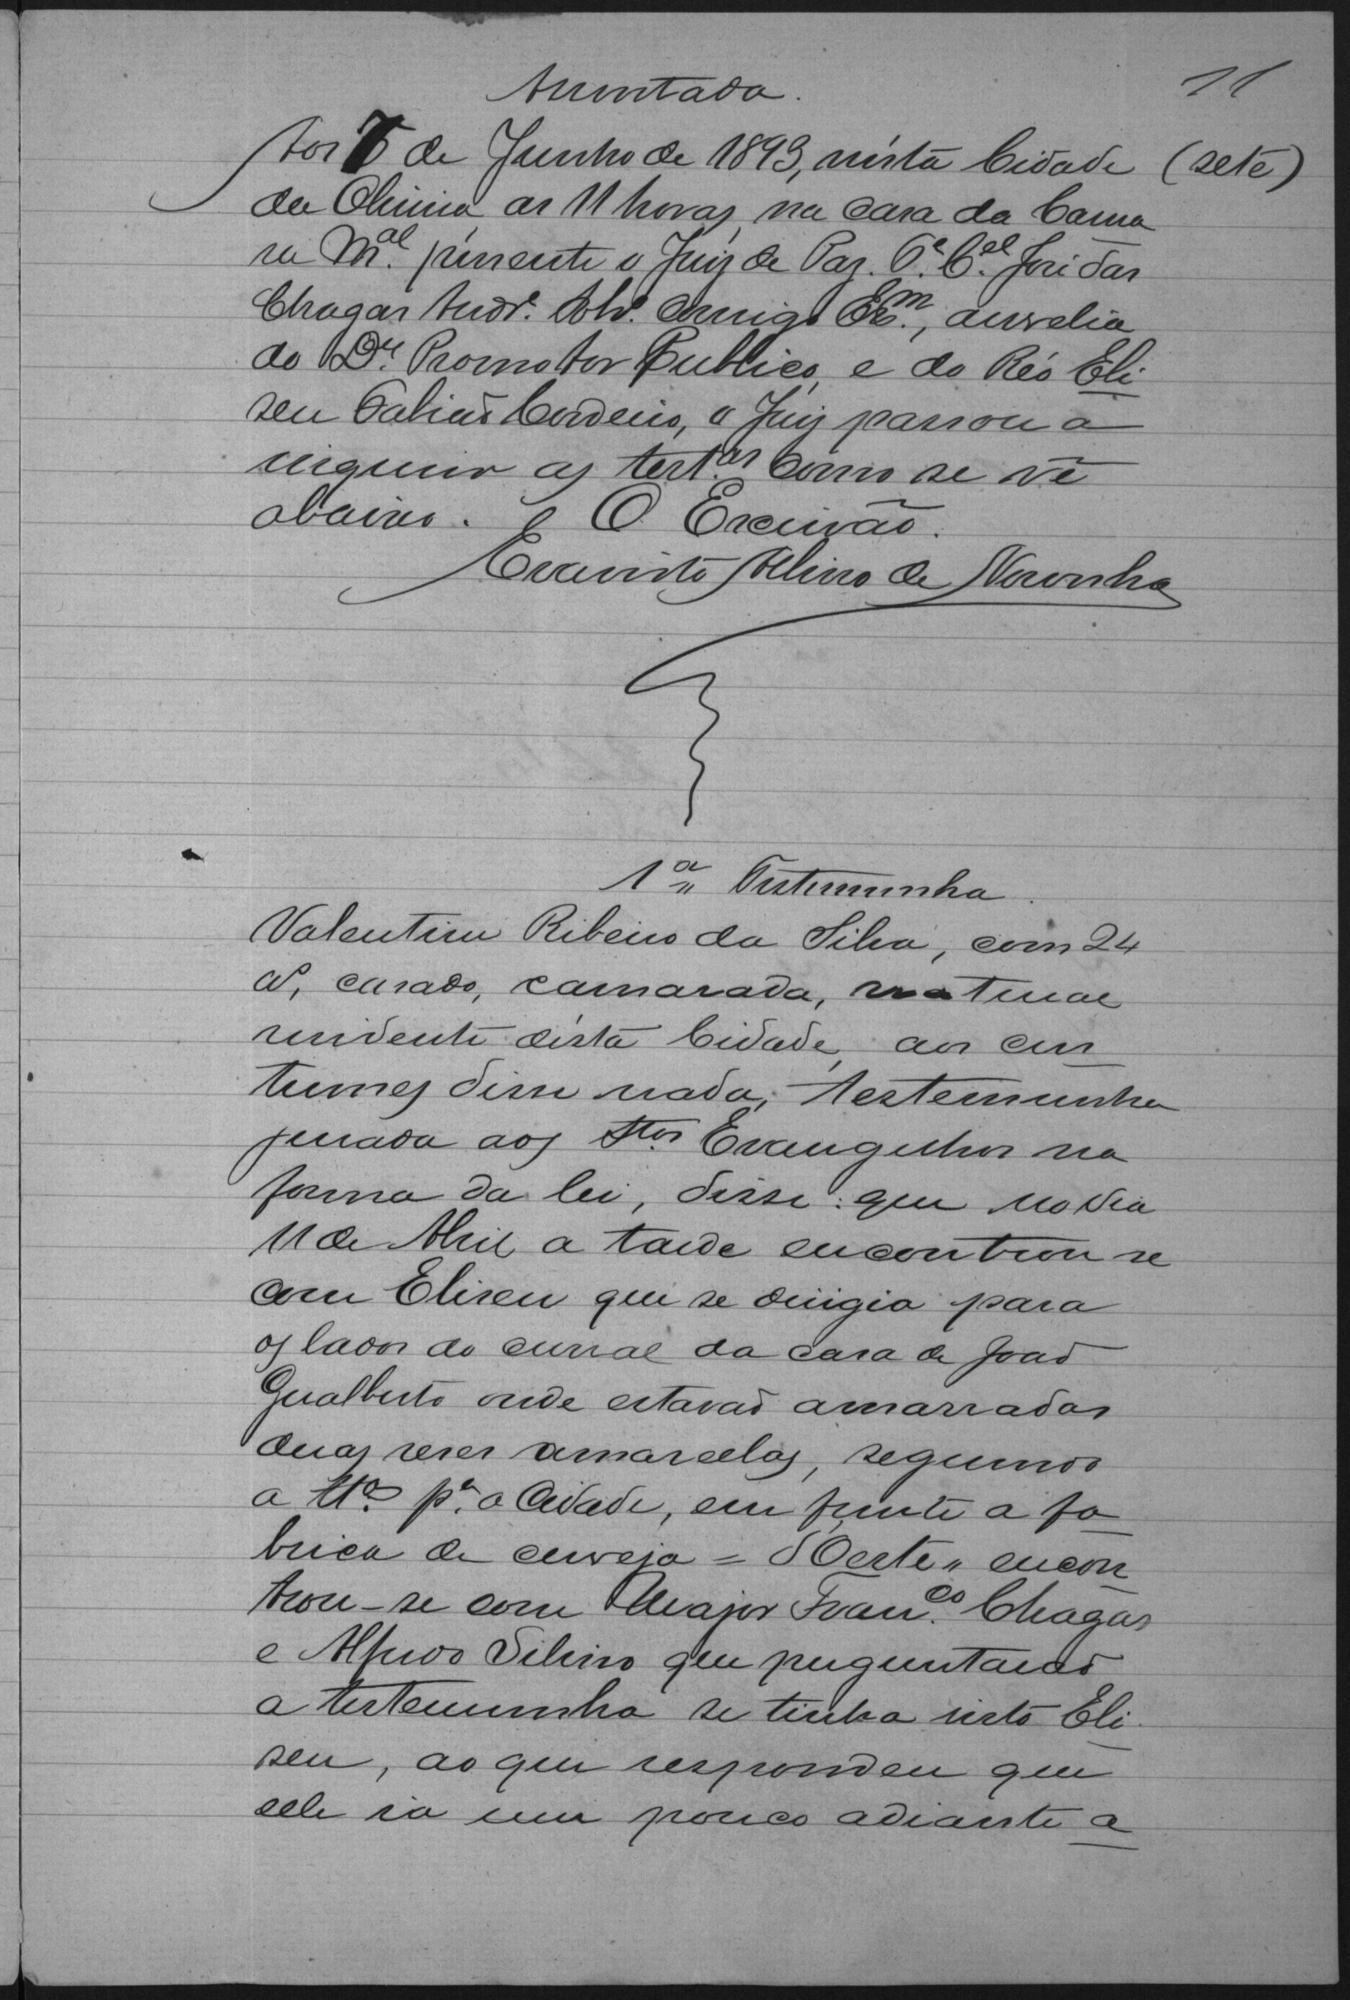 Assentada.
11
Aos 7 de Junho de 1893, nésta Cidade (sete)
da Oliveira as 11 horas, na casa da Cama
ra M.al presente o Juiz de Paz. T.e C.el José das
Chagas Andr.e comigo Esc.m, a revelia
do D.r Promotor Publico, e do Réo Eli
seu Cordeiro, o Juiz passou a
inquirir as test.as como se vê
abaixo. O Escrivão.
Evaristo Albino de Noronha
1.a Testemunha.
Valentim Ribeiro da Silva, com 24
a.s, casado, camarada, natural
residente désta Cidade, aos cus
tumes disse nada, testemunha
jurada aos S.tos Evangelhos na
forma da lei, disse: que no dia
11 de Abril a tarde encontrou se
com Eliseu que se dirigia para
os lados do curral da casa de João
Gualberto onde estavaõ amarradas
duas reses amarellas, seguimos
a t.a p.a a Cidade, em frente a fa
brica de cerveja = d'Oeste " encon
trou-se com Major Fran.co Chagas
e Alfredo Silvino que perguntaraõ
a testemunha se tinha visto Eli
seu, ao que respondeu que
elle ia um pouco adiante a